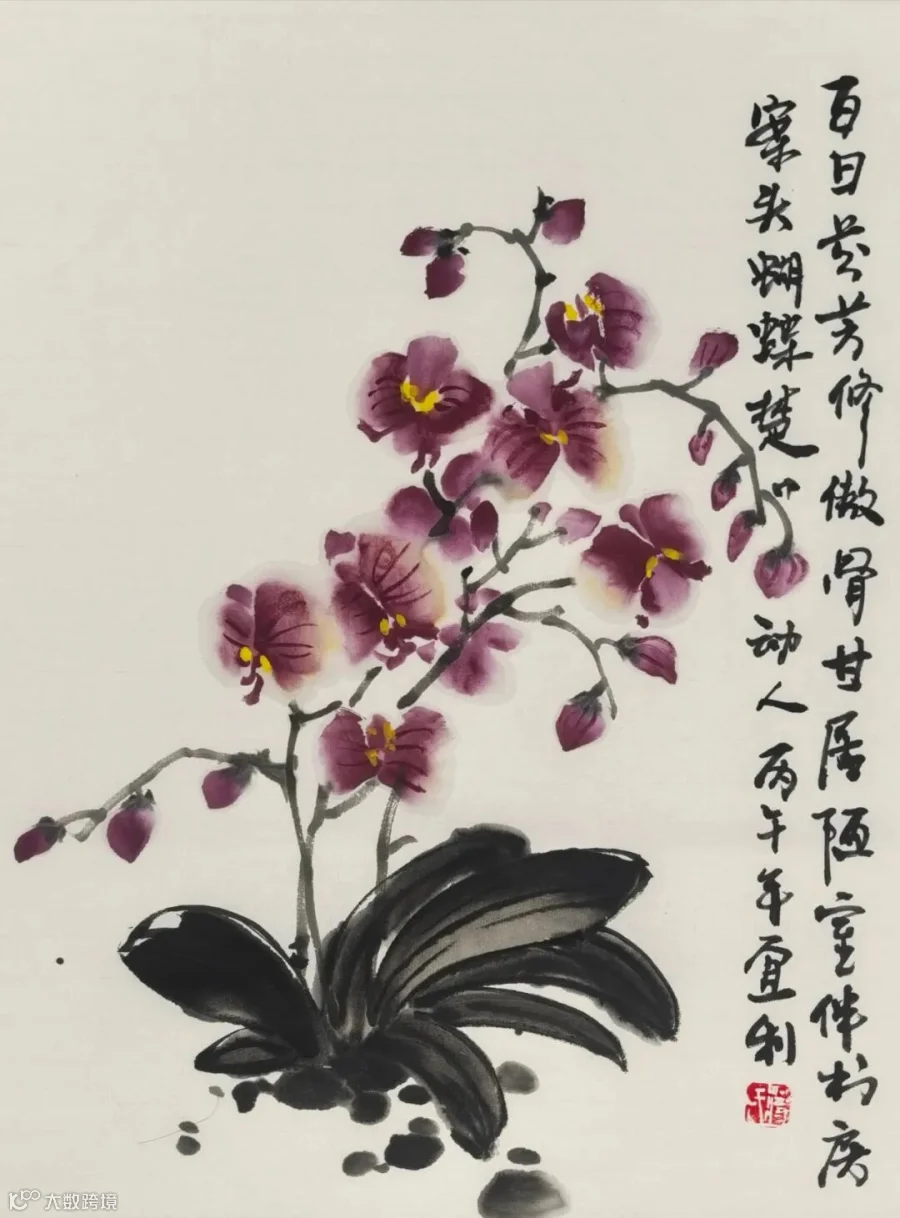 百日芬芳修傲骨甘居陋室伴书房
案头蝴蝶楚〃动人丙午年宜利
大数跨境